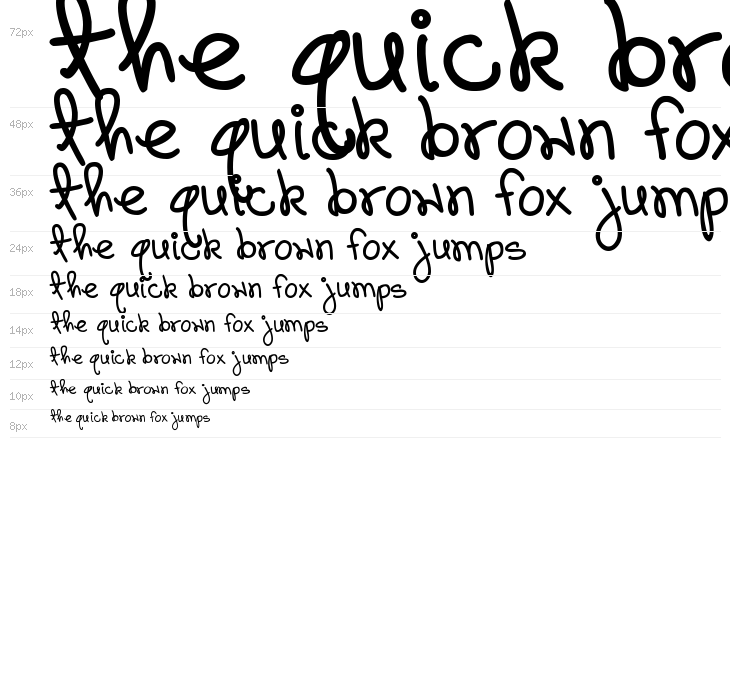 72px the quick bro
48px the quick brown fox
36px the quick brown fox jump
24px the quick brown fox jumps
18px the quick brown fox jumps
14px the quick brown fox jumps
12px the quick brown fox jumps
10px the quick brown fox jumps
8px the quick brown fox jumps